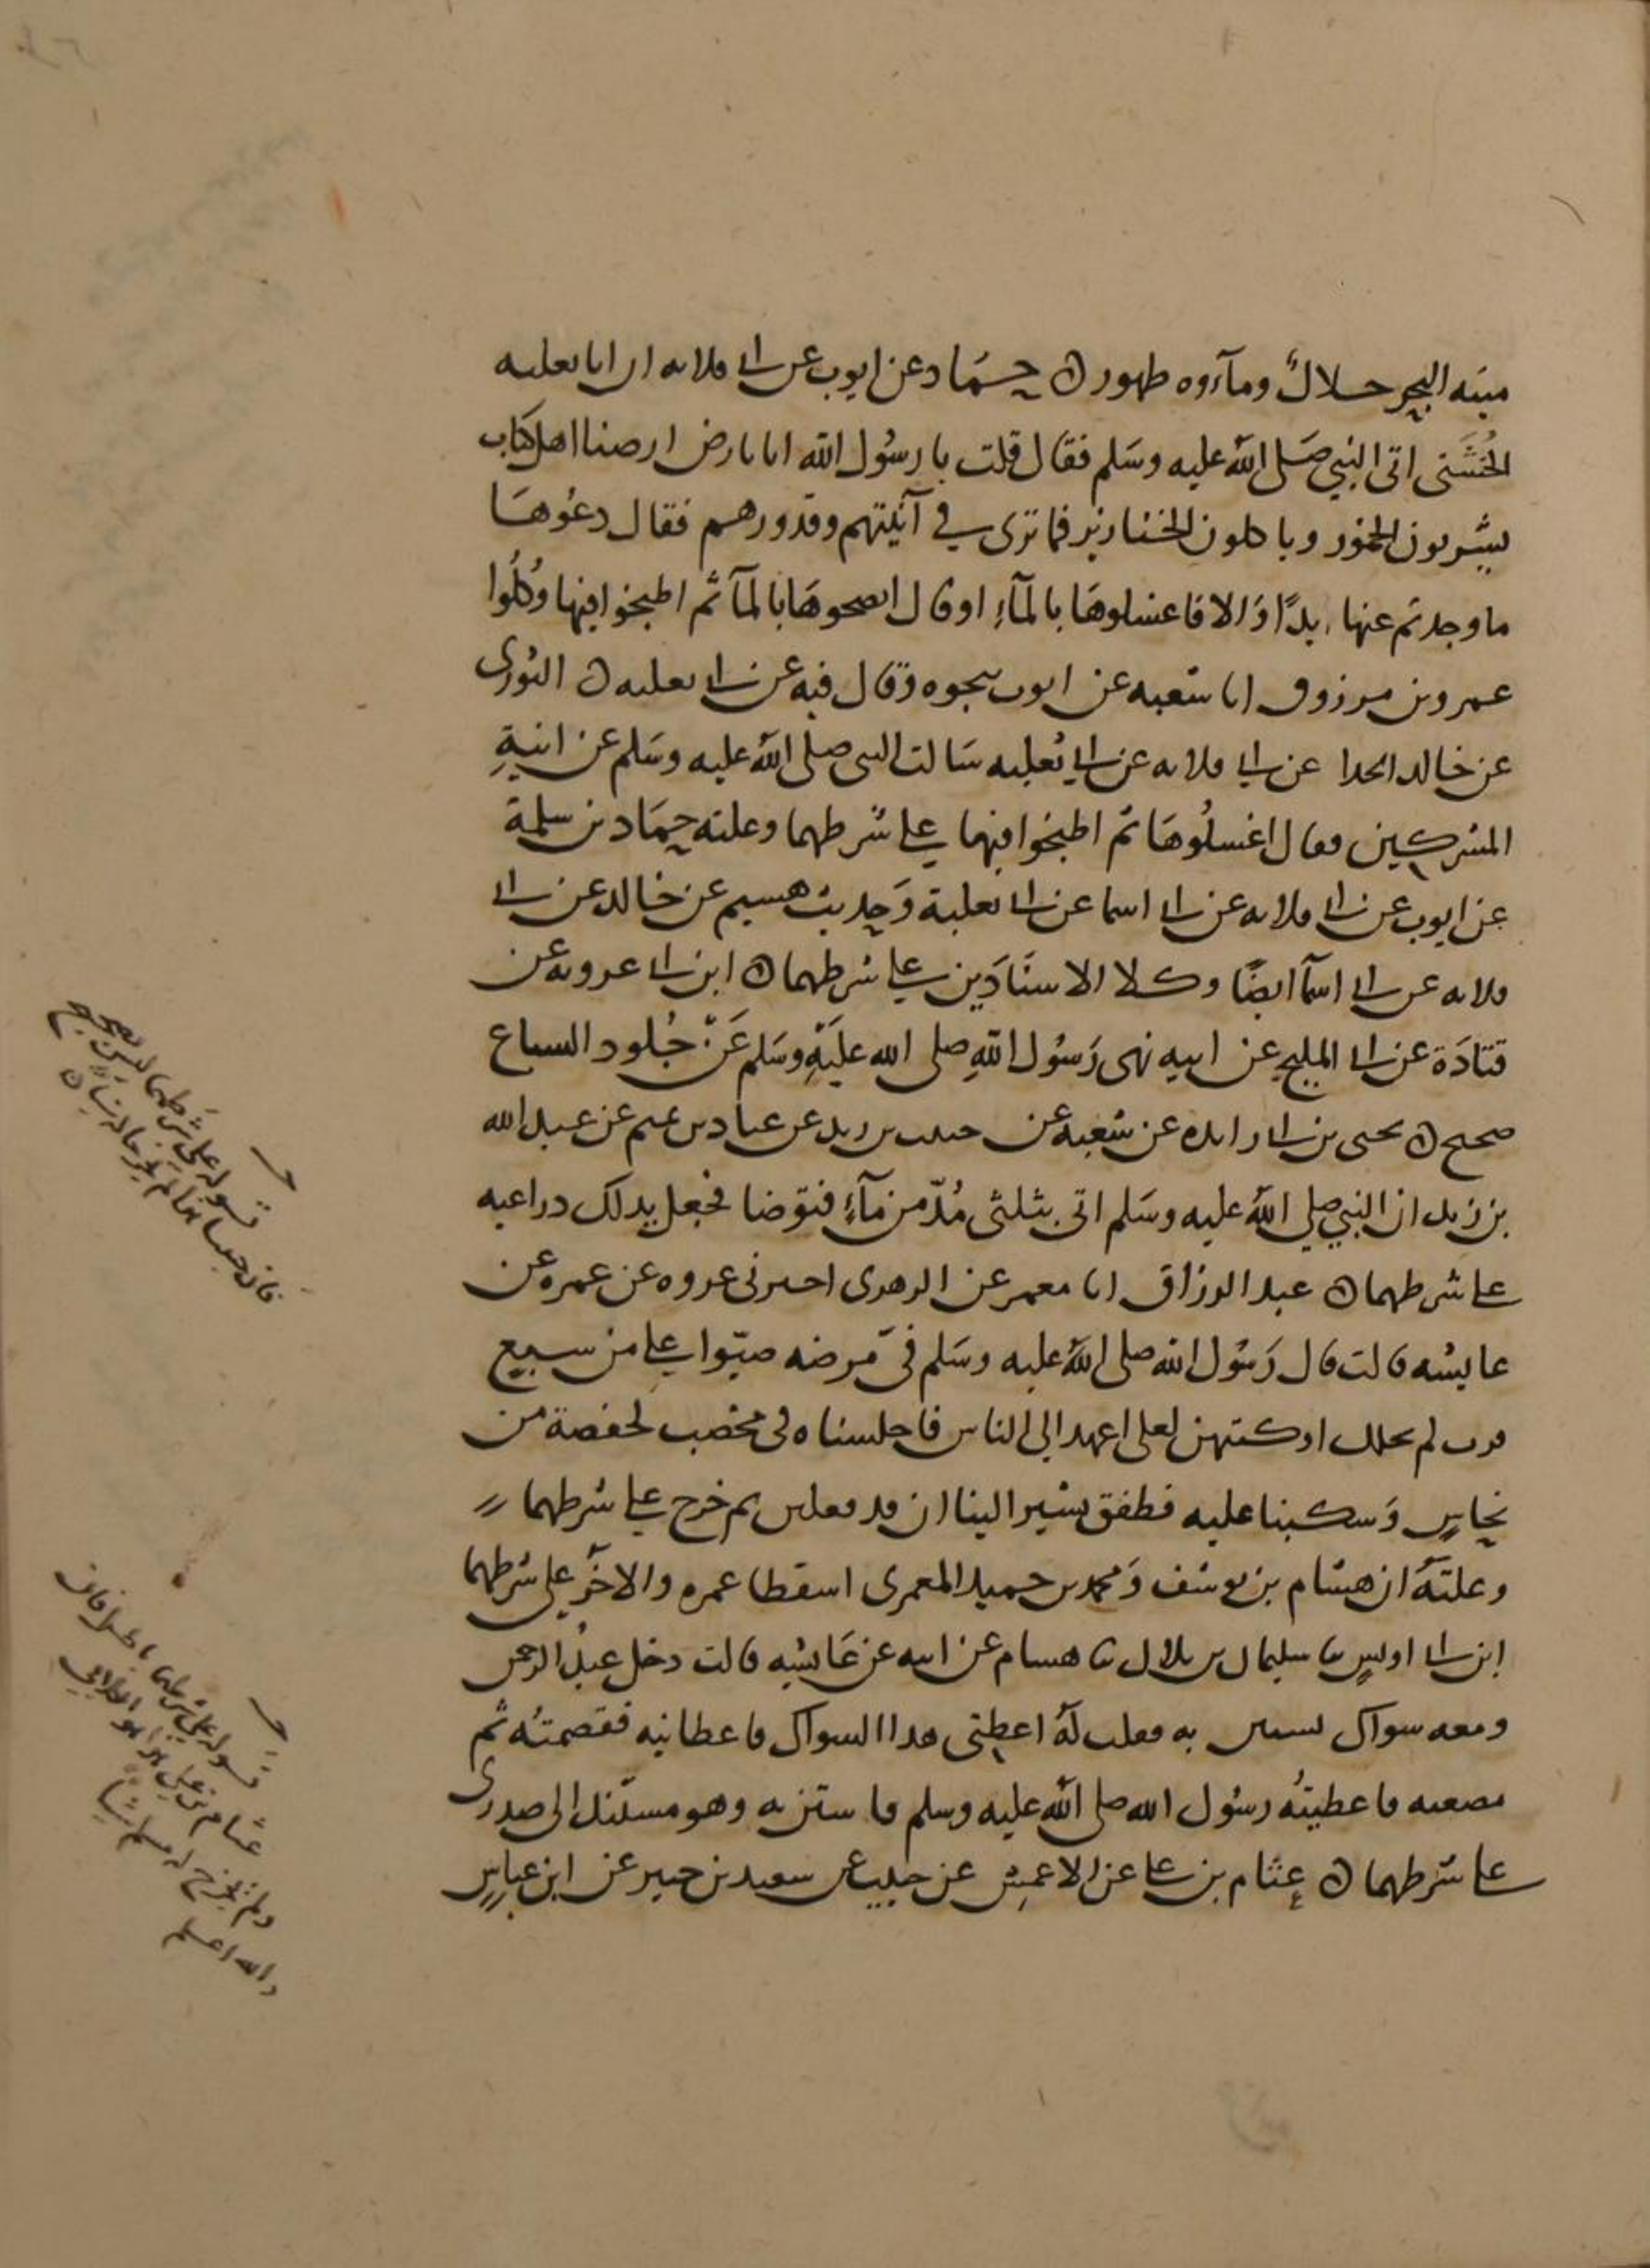 ميتة البحر حلالٌ ومآءوه طهور ه حماد عن ايوب عن ابي قلابه ان ابا ثعلبه
الخُشَنى اتى النبي صَلى الله عليه وسَلم فقال قلت يا رسُول الله انا بارض ارضنا اهل كتاب
يشربون الخمور وياكلون الخنازير فما ترى في آنيتهم وقدورهم فقال دعُوهَا
ما وجدتم عنها بدًا وَالا فاغسلوهَا بالمآءِ او قال انضحوهَا بالمآ ثم اطبخوا فيها وكُلُوا
عمرو بن مرزوق انا شعبه عن ايوب بنحوه وَقال فيه عن ابي ثعلبه ه الثورى
عن خالد الحذا عن ابي قلابه عن ابي ثعلبه سَالت النبى صلى الله عليه وسَلم عن انيةِ
المشركين فقال اغسلُوهَا ثم اطبخوا فيها على شرطهما وعلته حمَاد بن سلمة
عن ايوب عن ابي قلابه عن ابي اسما عن ابي ثعلبة وَحديث هشيم عن خالد عن ابي
قلابه عن ابي اسمآ ايضًا وكلا الاسنَادَين على شرطهما ه ابن ابي عروبه عن
قتادَة عن ابي المليح عن ابيه نهى رَسُول اللهِ صلى الله عليَهِ وسَلم عَنْ جُلود السباع
صحيح ه يحيى بن ابي زايده عن شعبه عن حبيب بن زيد عن عباد بن تميم عن عبد الله
بن زيد ان النبي صلى الله عليه وسَلم اتى بثلثى مُدّ من مآءٍ فتوَضا فجعل يدلك ذراعيه
على شرطهما ه عبد الرزاق انا معمر عن الزهرى اخبرنى عروه عن عمره عن
عايشه قالت قال رَسُول الله صلى الله عليه وسَلم في مَرضه صبّوا على من سبع
قرب لم تحلل اوكيتهن لعلى اعهد الى الناس فاجلسناه فى مخضب لحفصة من
نحاسٍ وَسكبنا عليه فطفق يشير الينا ان قد فعلتن ثم خرج على شرطهما
وعلته ان هشام بن يوسُف وَمحمد بن حميد المعمرى اسقطا عمره والاخَر على شرطهما
ابن ابي اويسٍ ثنا سليمان بن بلال ثنا هشام عن ابيه عن عَايشه قالت دخل عبدُ الرحمن
ومعه سواك يستن به فقلت لهُ اعطِنى هذا السواك فاعطانيه فقصمتُه ثم
مضغته فاعطيتُه رسُول الله صلى الله عليه وسلم فاستن به وهو مستند الى صدرى
على شرطهما ه عثام بن على عن الاعمش عن حبيب عن سعيد بن جبير عن ابن عباسٍ
قوله على شرطهما ليس بصحيح
فان حبيبا هذا لم يخرجا له شيأ ه
قوله على شرطهما
عثام بن علي هذا هو الكلابي
ولم يخرج له مسلم شيأ
والله اعلم